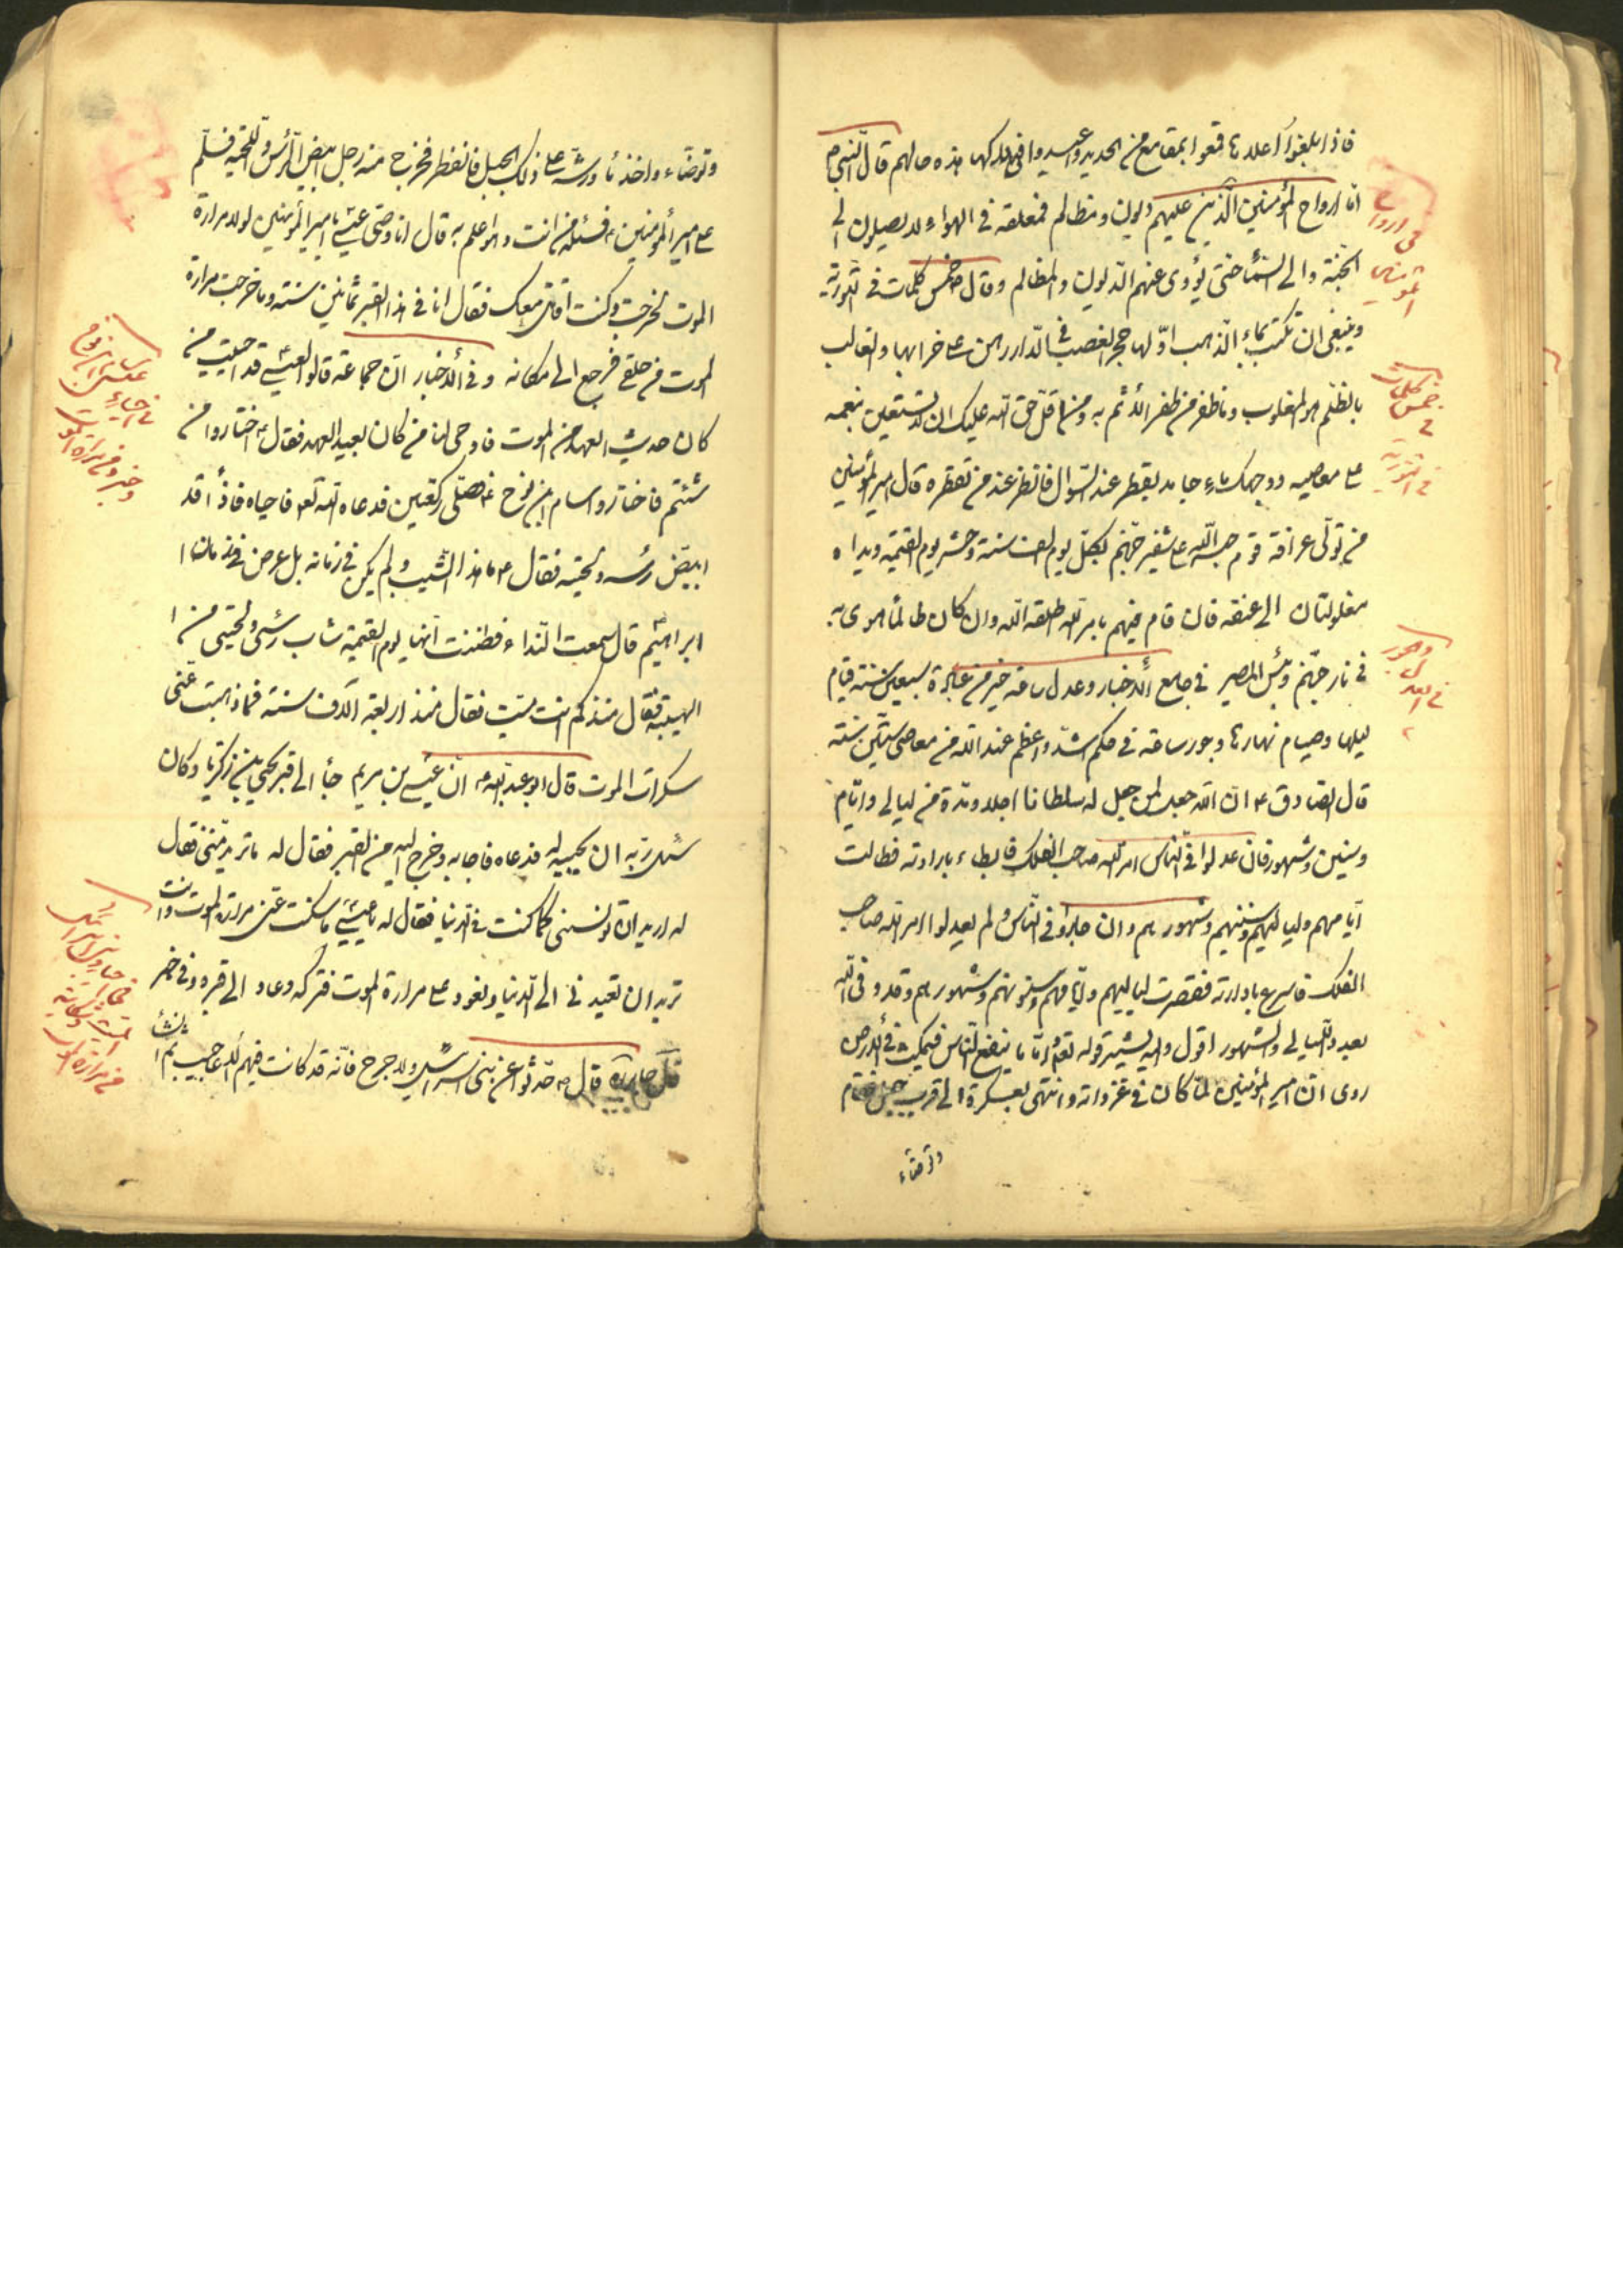 فاذا بلغوا اعلاها قمعوا بمقامع من الحديد واعيدوا في دركها هذه حالهم قال النبي ص
امّا ارواح المؤمنين الذين عليهم ديون ومظالم فمتعلقة في الهواء لا يصلون الى
الجنة والى السماء حتى يؤدى عنهم الديون والمظالم وقال ص خمس كلمات في التورية
وينبغي ان تكتب بماء الذهب اوّلها حجر الغصب في الدار رهن على خرابها والغالب
بالظلم هو المغلوب وما ظفر من ظفر الاثم به ومن اقلّ حق الله عليك ان لا تستعين بنعمه
على معاصيه ووجهك ماء جامد يقطر عند السؤال فانظر عند من تقطره قال امير المؤمنين
من تولّى عرافة قوم حبسه الله على شفير جهنم لكل يوم الف سنة وحشر يوم القيمة ويداه
مغلولتان الى عنقه فان قام فيهم بامر الله اطلقه الله وان كان ظالماً هوى به
في نار جهنم وبئس المصير في جامع الأخبار وعدل ساعة خير من عبادة سبعين سنة قيام
ليلها وصيام نهارها وجور ساعة في حكم اشدّ واعظم عند الله من معاصي ستّين سنة
قال الصادق ع انّ الله جعل لمن جعل له سلطانا اجلا ومدة من ليالي وايّام
وسنين وشهور فان عدلوا في الناس امر الله صاحب الفلك فابطاء بادارته فطالت
ايامهم ولياليهم وسنينهم وشهورهم وان جاروا في الناس ولم يعدلوا امر الله صاحب
الفلك فاسرع بادارته فقصرت لياليهم وايّامهم وسنونهم وشهورهم وقد وفى الله
بعدد الليالي والشهور اقول واليه يشير قوله تعالى وامّا ما ينفع الناس فيمكث في الأرض
روى انّ امير المؤمنين لمّا كان في غزواته وانتهى بعسكره الى قرب جبل فقام
وتوضاء
في ارواح المؤمنين
خمس كلمات في التورية
في العدل وجور
وتوضّاء واخذ ماء ورشّه على ذلك الجبل فانفطر فخرج منه رجل ابيض الرأس واللحية فسلّم
على امير المؤمنين ع فسئله من انت وهو اعلم به قال انا وصي عيسى يا امير المؤمنين لولا مرارة
الموت لخرجت وكنت اقاتل معك فقال انا في هذا القبر ثمانين سنة وما خرجت مرارة
الموت من حلقي فرجع الى مكانه وفي الأخبار انّ جماعة قالوا لعيسى قد احييت من
كان حديث العهد من الموت فاوحى لنا من كان بعيد العهد فقال ع اختاروا من
شئتم فاختاروا سام ابن نوح ع فصلّى ركعتين فدعاه الله تعالى فاحياه فاذاً قد
ابيضّ رأسه ولحيته فقال ع ما هذا الشيب ولم يكن في زمانه بل عرض في زمان
ابراهيم قال سمعت النداء فظننت انّها يوم القيمة شاب رأسي ولحيتي من
الهيبة فقال منذ كم انت ميت فقال منذ اربعة آلاف سنة فما ذهبت عنّي
سكرات الموت قال ابو عبد الله ع انّ عيسى بن مريم جاء الى قبر يحيى بن زكريا وكان
سئل ربّه ان يحييه له فدعاه فاجابه وخرج اليه من القبر فقال له ما تريد منّي فقال
له اريد ان تونسني كما كنت في الدنيا فقال له يا عيسى ما سكنت عنّي مرارة الموت وانت
تريد ان تعيدني الى الدنيا وتعود علي مرارة الموت فتركه وعاد الى قبره وفي خبر
قال ص حدّثوا عن بني اسرائيل ولا حرج فانّه قد كانت فيهم الأعاجيب ثم انشأ